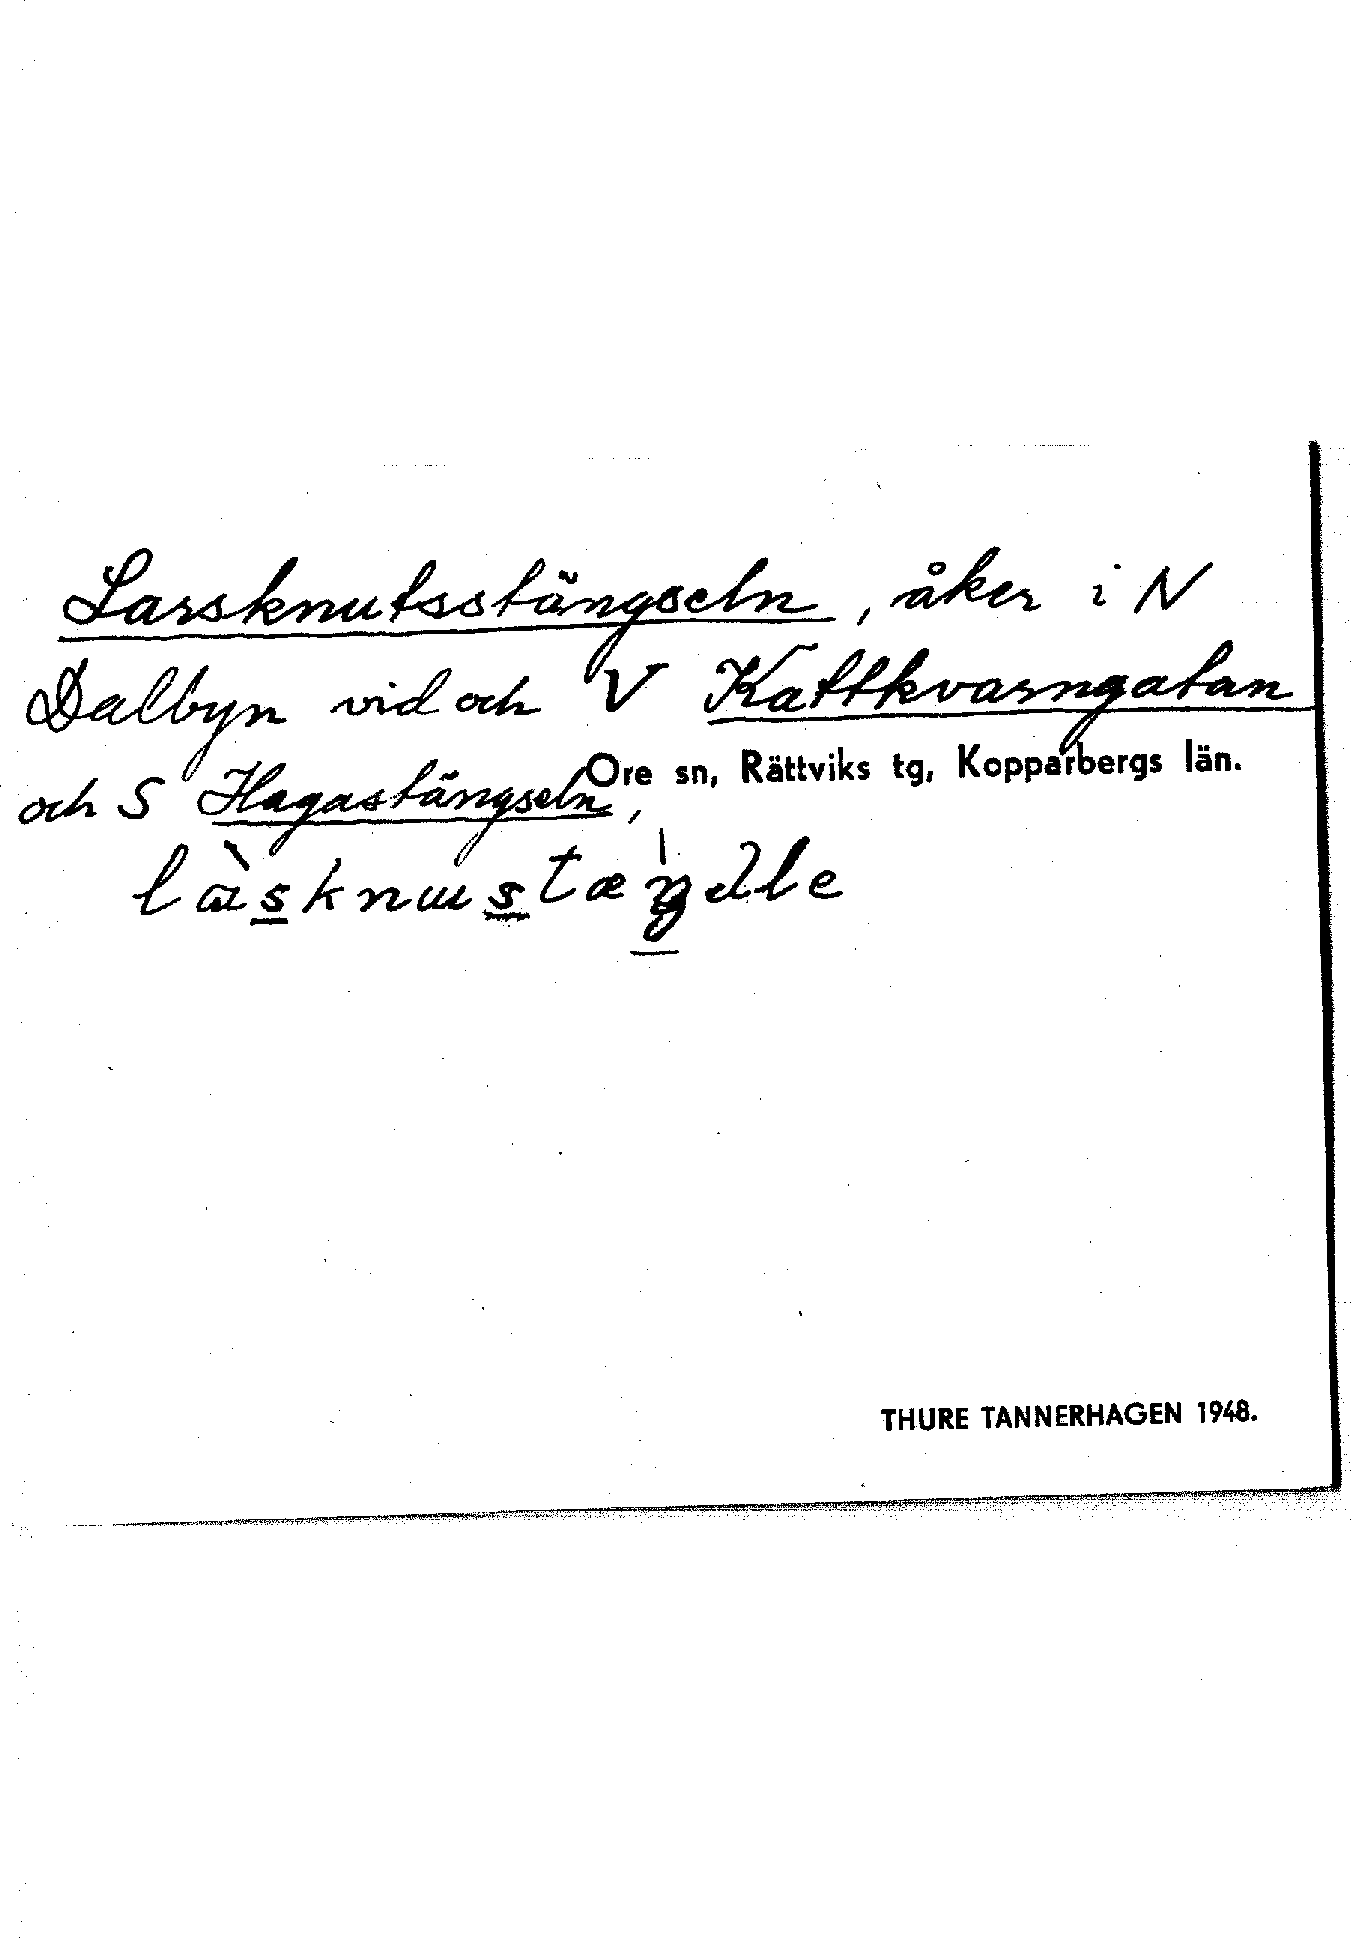 Larsknutsstängseln, åker i N
Dalbyn vid och V Kattkvarngatan
Ore sn, Rättviks tg, Kopparbergs län.
och S Hagastängseln,
THURE TANNERHAGEN 1948.